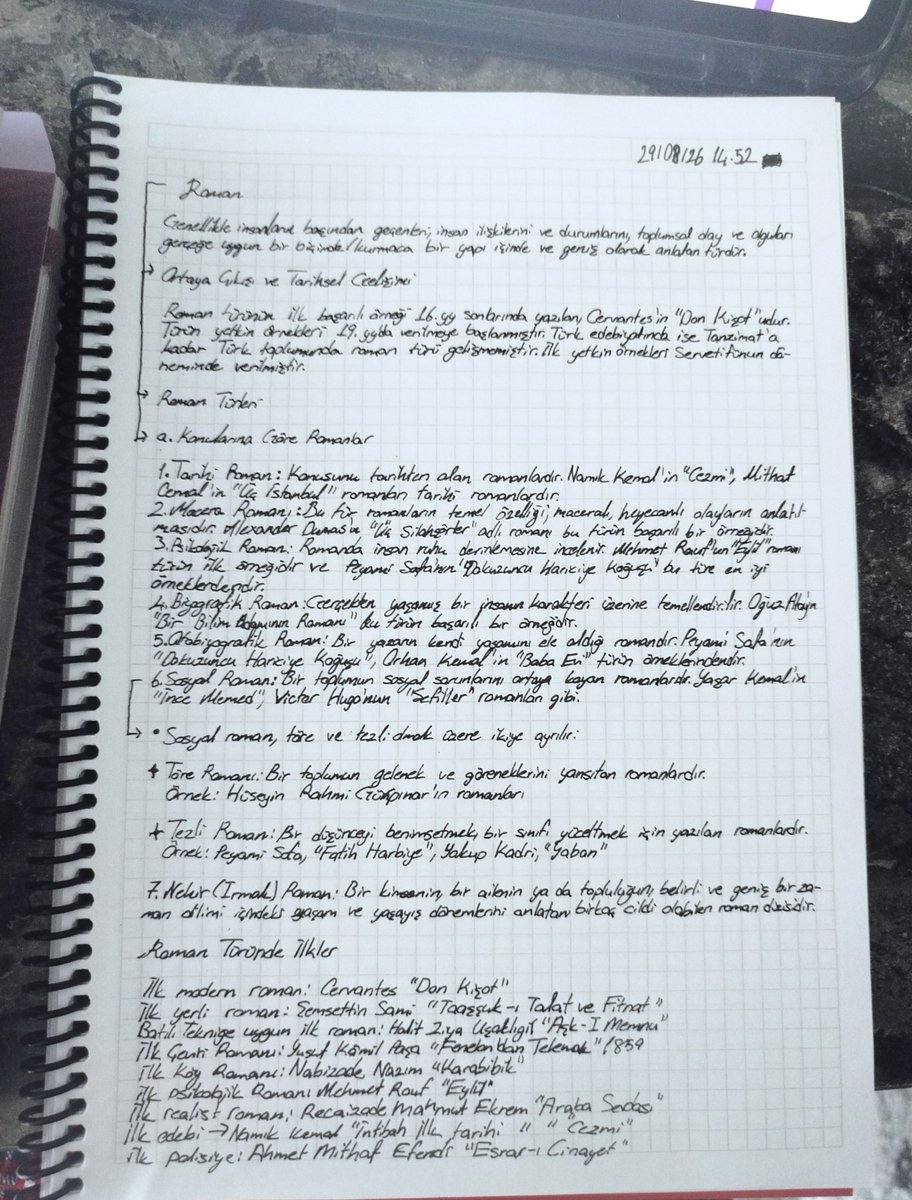 29/08/26 14.52
Roman
Genellikle insanların başından geçenleri, insan ilişkilerini ve durumlarını, toplumsal olay ve olguları
gerçeğe uygun bir biçimde/kurmaca bir yapı içinde ve geniş olarak anlatan türdür.
Ortaya Çıkışı ve Tarihsel Gelişimi
Roman türünün ilk başarılı örneği 16.yy sonlarında yazılan, Cervantes'in "Don Kişot"udur.
Türün yetkin örnekleri 19.yy'da verilmeye başlanmıştır. Türk edebiyatında ise Tanzimat'a
kadar Türk toplumunda roman türü gelişmemiştir. İlk yetkin örnekleri Servetifünun dö-
neminde verilmiştir.
Roman Türleri
a. Konularına Göre Romanlar
1. Tarihi Roman: Konusunu tarihten alan romanlardır. Namık Kemal'in "Cezmi", Mithat
Cemal'in "Üç İstanbul" romanları tarihi romanlardır.
2. Macera Romanı: Bu tür romanların temel özelliği, maceralı, heyecanlı olayların anlatıl-
masıdır. Alexander Dumas'ın "Üç Silahşörler" adlı romanı bu türün başarılı bir örneğidir.
3. Psikolojik Roman: Romanda insan ruhu derinlemesine incelenir. Mehmet Rauf'un "Eylül" romanı
türün ilk örneğidir ve Peyami Safa'nın "Dokuzuncu Hariciye Koğuşu" bu türe en iyi
örneklerdendir.
4. Biyografik Roman: Gerçekten yaşamış bir insanın karakteri üzerine temellendirilir. Oğuz Atay'ın
"Bir Bilim Adamının Romanı" bu türün başarılı bir örneğidir.
5. Otobiyografik Roman: Bir yazarın kendi yaşamını ele aldığı romandır. Peyami Safa'nın
"Dokuzuncu Hariciye Koğuşu", Orhan Kemal'in "Baba Evi" türün örneklerindendir.
6. Sosyal Roman: Bir toplumun sosyal sorunlarını ortaya koyan romanlardır. Yaşar Kemal'in
"İnce Memed", Victor Hugo'nun "Sefiller" romanları gibi.
• Sosyal roman, töre ve tezli olmak üzere ikiye ayrılır:
+ Töre Romanı: Bir toplumun gelenek ve göreneklerini yansıtan romanlardır.
Örnek: Hüseyin Rahmi Gürpınar'ın romanları
+ Tezli Roman: Bir düşünceyi benimsetmek, bir sınıfı yüceltmek için yazılan romanlardır.
Örnek: Peyami Safa, "Fatih Harbiye", Yakup Kadri, "Yaban"
7. Nehir (Irmak) Roman: Bir kimsenin, bir ailenin ya da topluluğun, belirli ve geniş bir za-
man dilimi içindeki yaşam ve yaşayış dönemlerini anlatan birkaç cildi olabilen roman dizisidir.
Roman Türünde İlkler
İlk modern roman: Cervantes "Don Kişot"
İlk yerli roman: Şemsettin Sami "Taaşşuk-ı Talat ve Fitnat"
Batılı Tekniğe uygun ilk roman: Halit Ziya Uşaklıgil "Aşk-I Memnu"
İlk Çeviri Romanı: Yusuf Kâmil Paşa "Fenelon'dan Telemak" 1859
İlk Köy Romanı: Nabizade Nazım "Karabibik"
İlk psikolojik Romanı Mehmet Rauf "Eylül"
İlk realist roman: Recaizade Mahmut Ekrem "Araba Sevdası"
İlk edebi → Namık Kemal "İntibah İlk tarihi " " Cezmi"
İlk polisiye: Ahmet Mithat Efendi "Esrar-ı Cinayet"